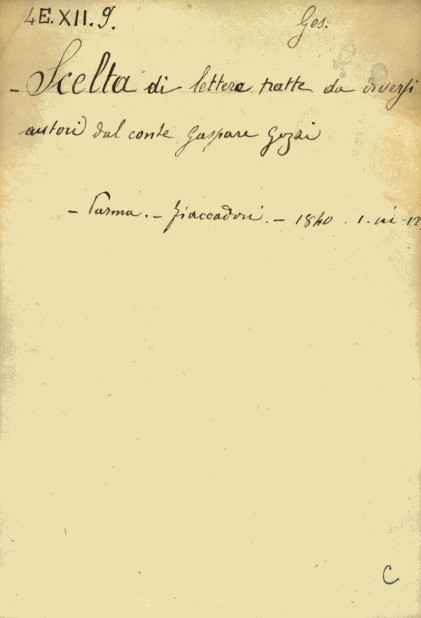 4E.XII.9.
Ges.
- Scelta di lettere tratte da diversi
autori dal conte Gaspare Gozzi
- Parma. - Fiaccadori. - 1840. 1. in-12
C